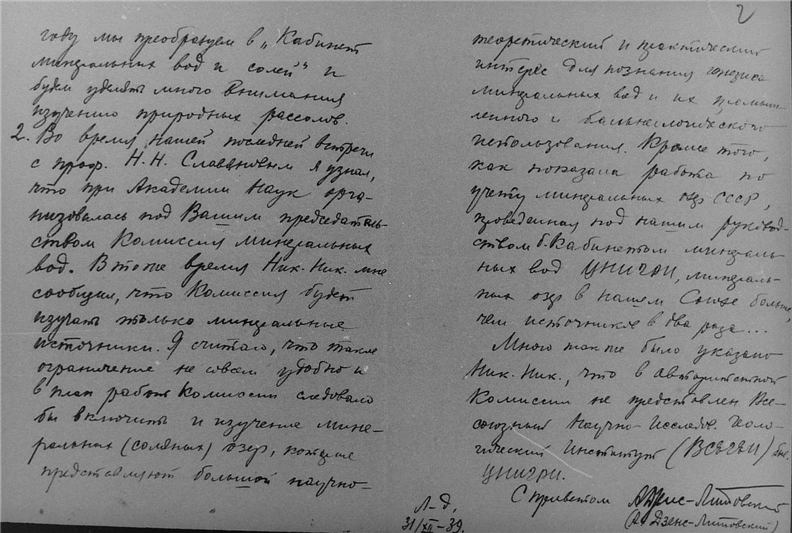 2
году мы преобразуем в „Кабинет
минеральных вод и солей" и
будем уделять много внимания
изучению природных рассолов.
2. Во время нашей последней встречи
с проф. Н.Н. Славяновым я узнал,
что при Академии Наук орга-
низовалась под Вашим председатель-
ством Комиссия минеральных
вод. В то же время Ник. Ник. мне
сообщил, что Комиссия будет
изучать только минеральные
источники. Я считаю, что такое
ограничение не совсем удобно и
в план работ Комиссии следовало
бы включить и изучение мине-
ральных (соляных) озер, которые
представляют большой научно-
теоретический и практический
интерес для познания генезиса
минеральных вод и их промыш-
ленного и бальнеологического
использования. Кроме того,
как показала работа по
учету минеральных озер СССР,
проведенная под нашим руковод-
ством б. Кабинетом минераль-
ных вод ЦНИГРИ, минераль-
ных озер в нашем Союзе больше,
чем источников в два раза...
Мною также было указано
Ник. Ник., что в авторитетной
Комиссии не представлен Все-
союзный Научно-Исследов. Геоло-
гический Институт (ВСЕГЕИ) быв.
ЦНИГРИ.
С приветом А Дзенс-Литовский
(АИ Дзенс-Литовский)
Л-д.
31/XII-39.